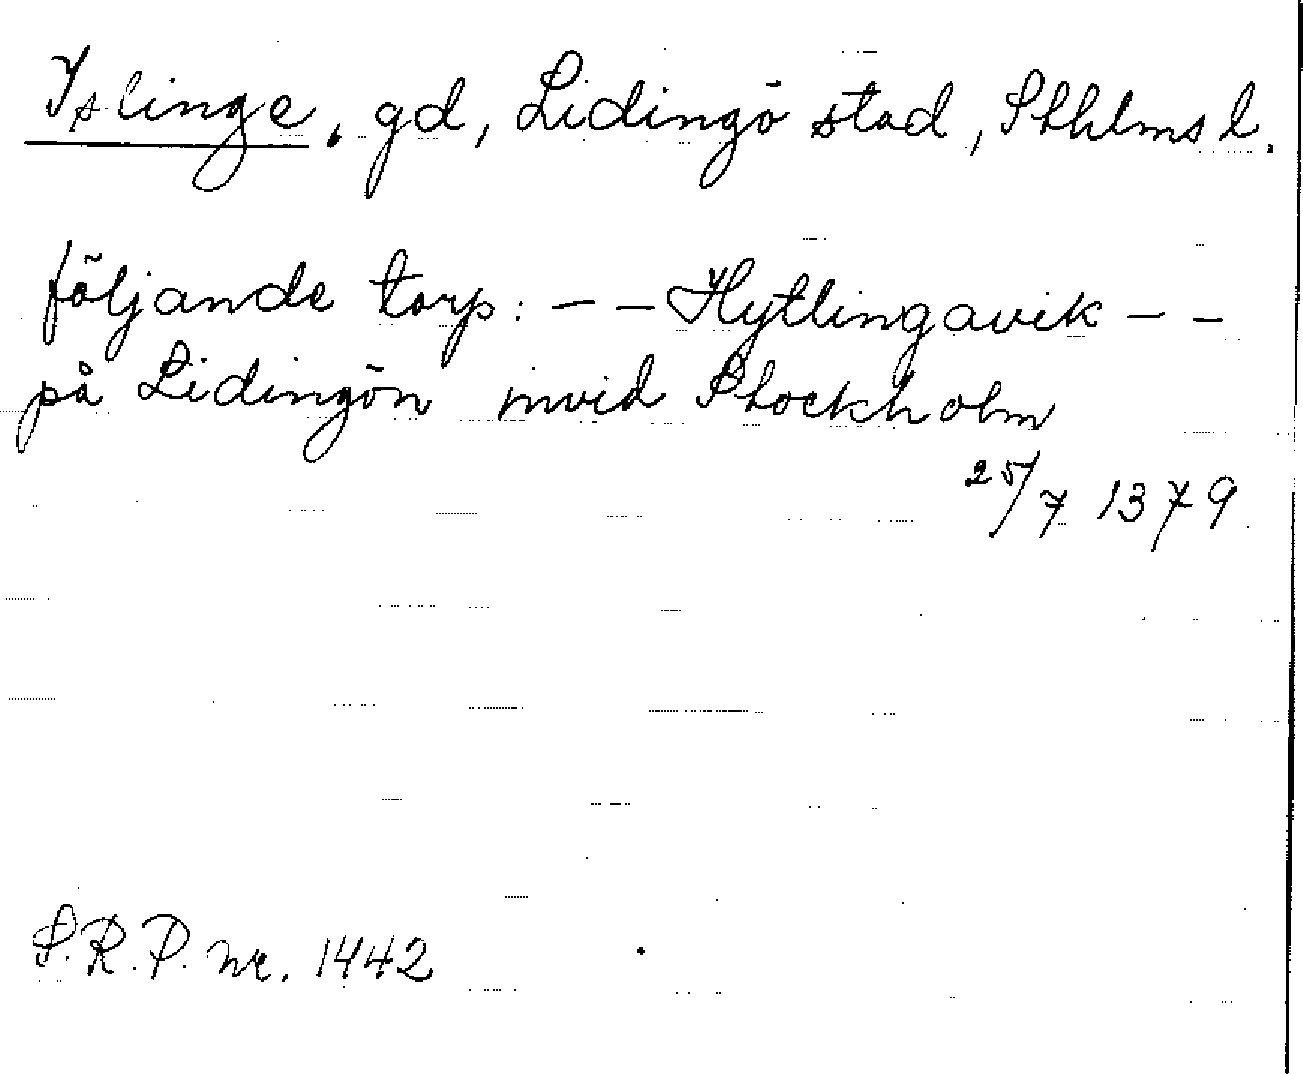 Islinge, gd, Lidingö stad, Sthlms l.
följande torp: - - Hytlingavik - -
på Lidingön invid Stockholm
25/7 1379
S.R.P. nr. 1442